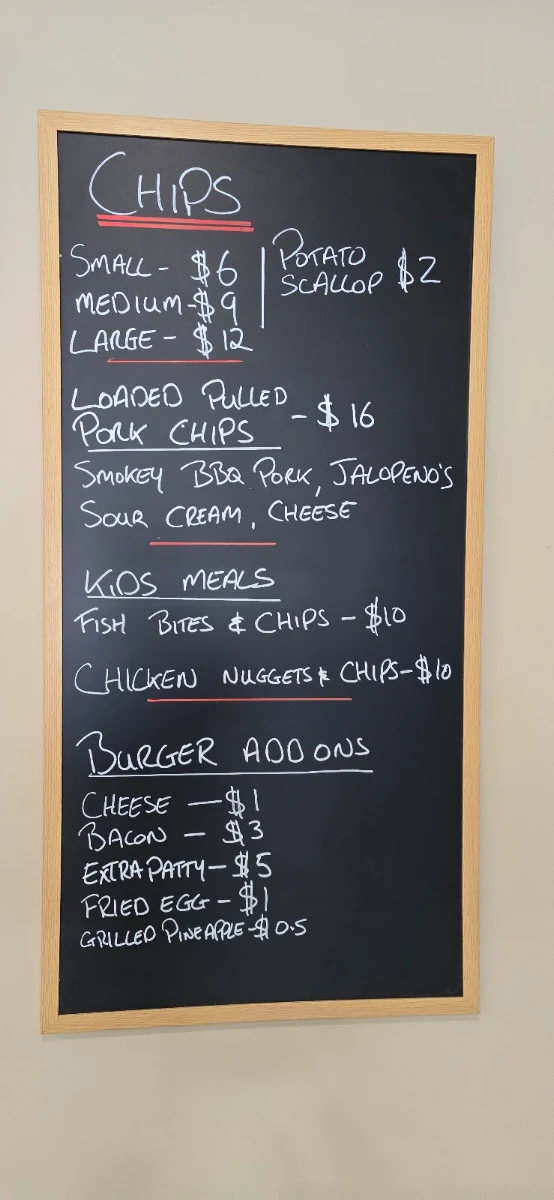 CHIPS
SMALL - $6
MEDIUM - $9
LARGE - $12
POTATO
SCALLOP $2
LOADED PULLED
PORK CHIPS - $16
SMOKEY BBQ PORK, JALOPENO'S
SOUR CREAM, CHEESE
KIDS MEALS
FISH BITES & CHIPS - $10
CHICKEN NUGGETS & CHIPS - $10
BURGER ADD ONS
CHEESE - $1
BACON - $3
EXTRA PATTY - $5
FRIED EGG - $1
GRILLED PINEAPPLE - $0.5